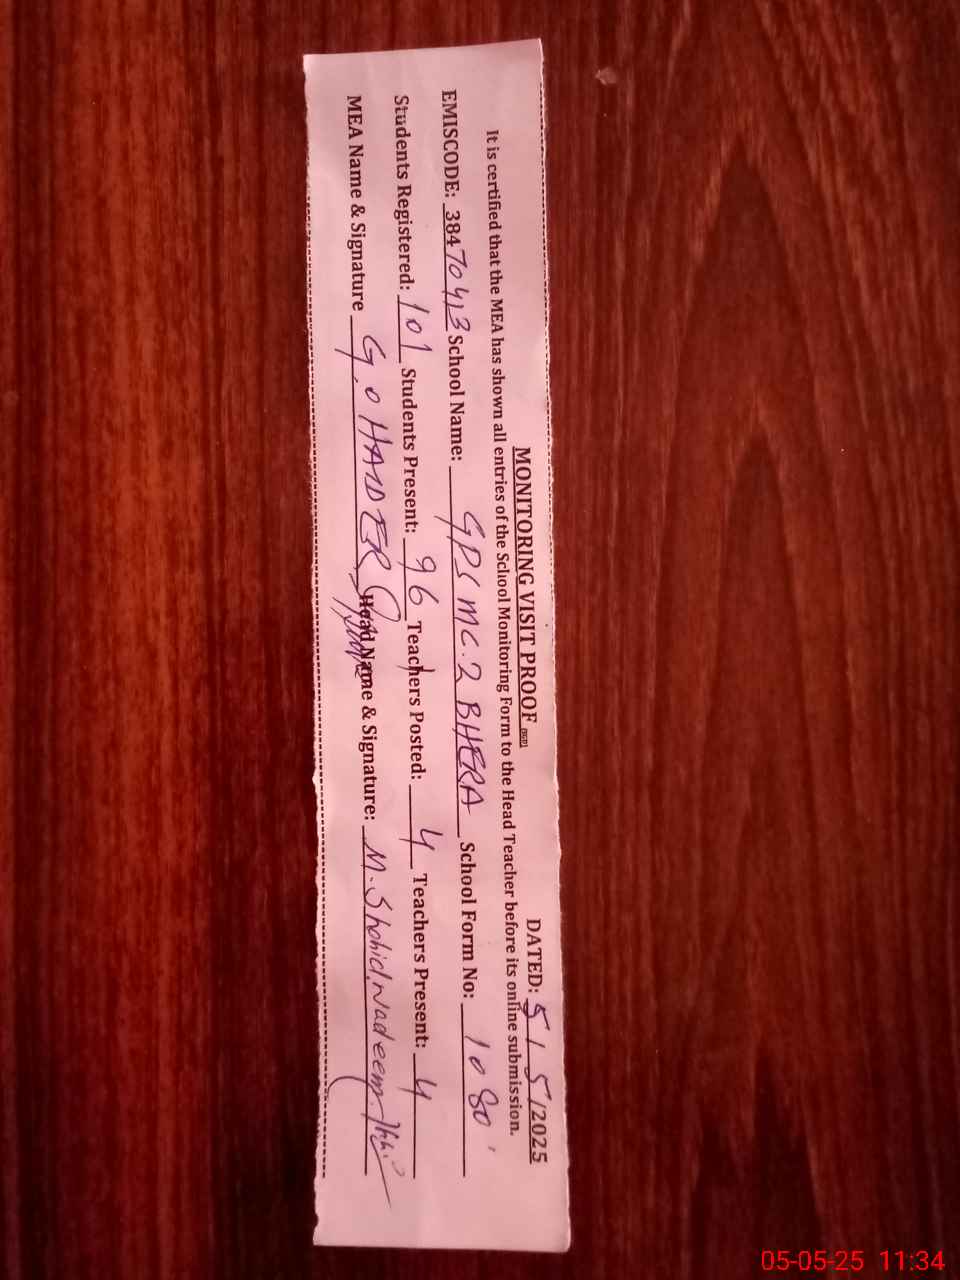 MONITORING VISIT PROOF
DATED: 5/5/2025
It is certified that the MEA has shown all entries of the School Monitoring Form to the Head Teacher before its online submission.
EMISCODE: 38470413 School Name: GPS MC.2 BHERA School Form No: 1080
Students Registered: 101 Students Present: 96 Teachers Posted: 4 Teachers Present: 4
MEA Name & Signature G.O HAIDER Head Name & Signature: M.Shahid Nadeem
05-05-25 11:34